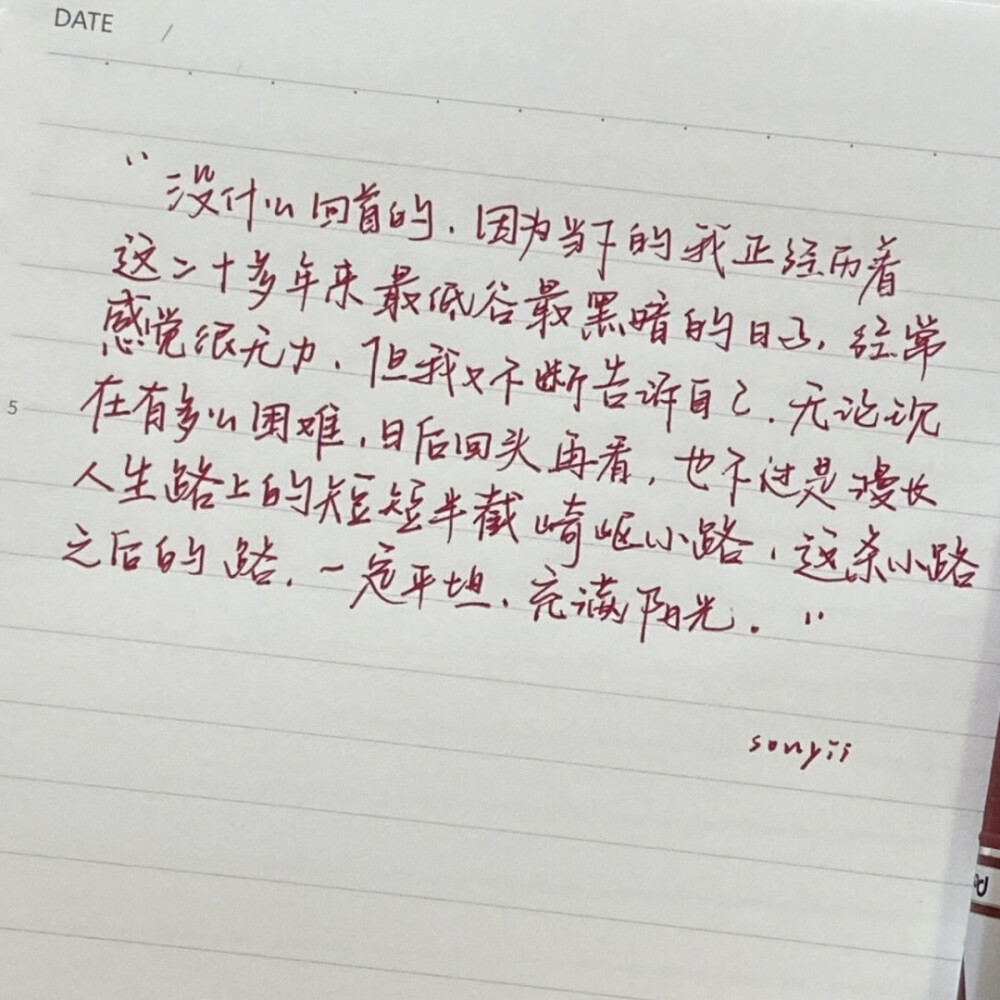 DATE /
“没什么回首的，因为当下的我正经历着
这二十多年来最低谷最黑暗的日子，经常
感觉很无力，但我又不断告诉自己，无论现
5 在有多么困难，日后回头再看，也不过是漫长
人生路上的短短半截崎岖小路，这条小路
之后的路，一定平坦，充满阳光。”
sonyii